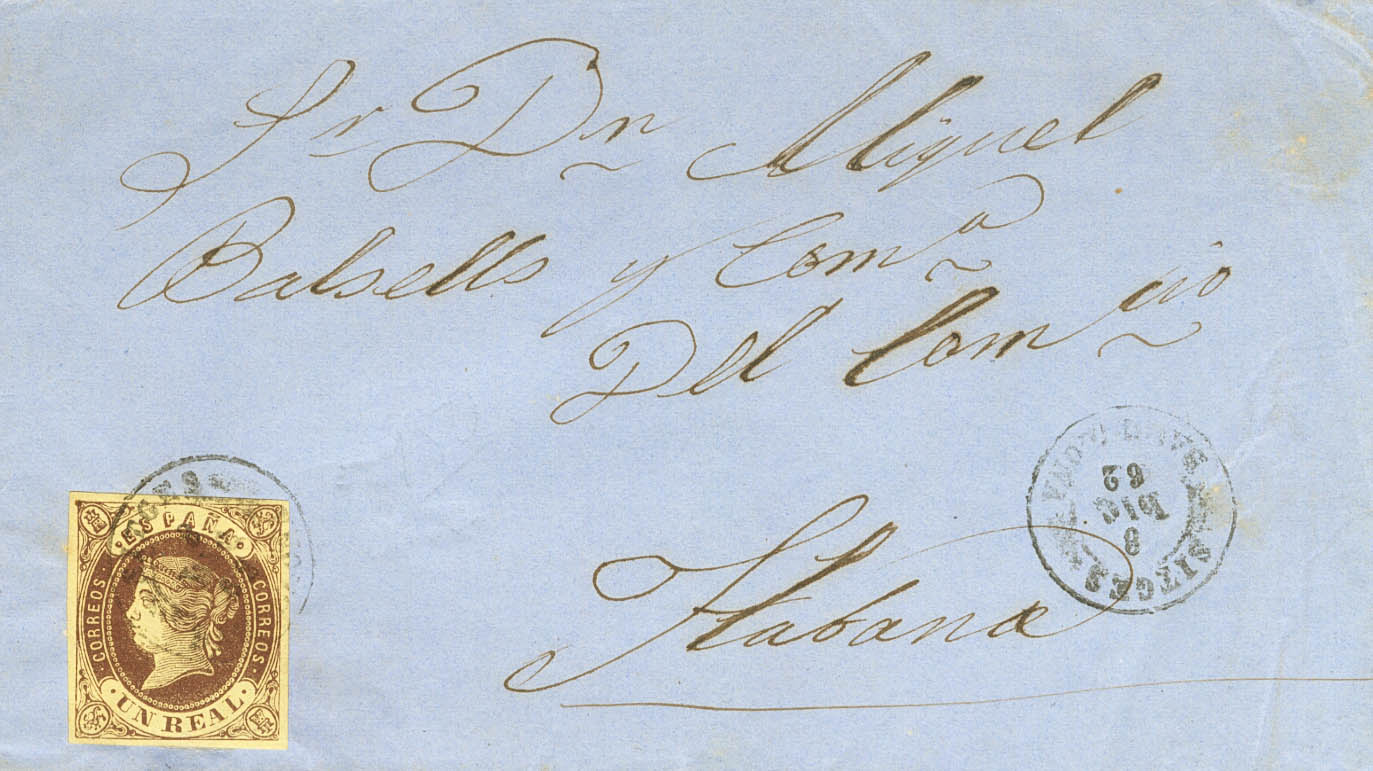 Sr Dn Miguel
Balsells y Coma
Del Comcio
Habana
SITGES
8
DIC
62
ESPAÑA
CORREOS
CORREOS
UN REAL